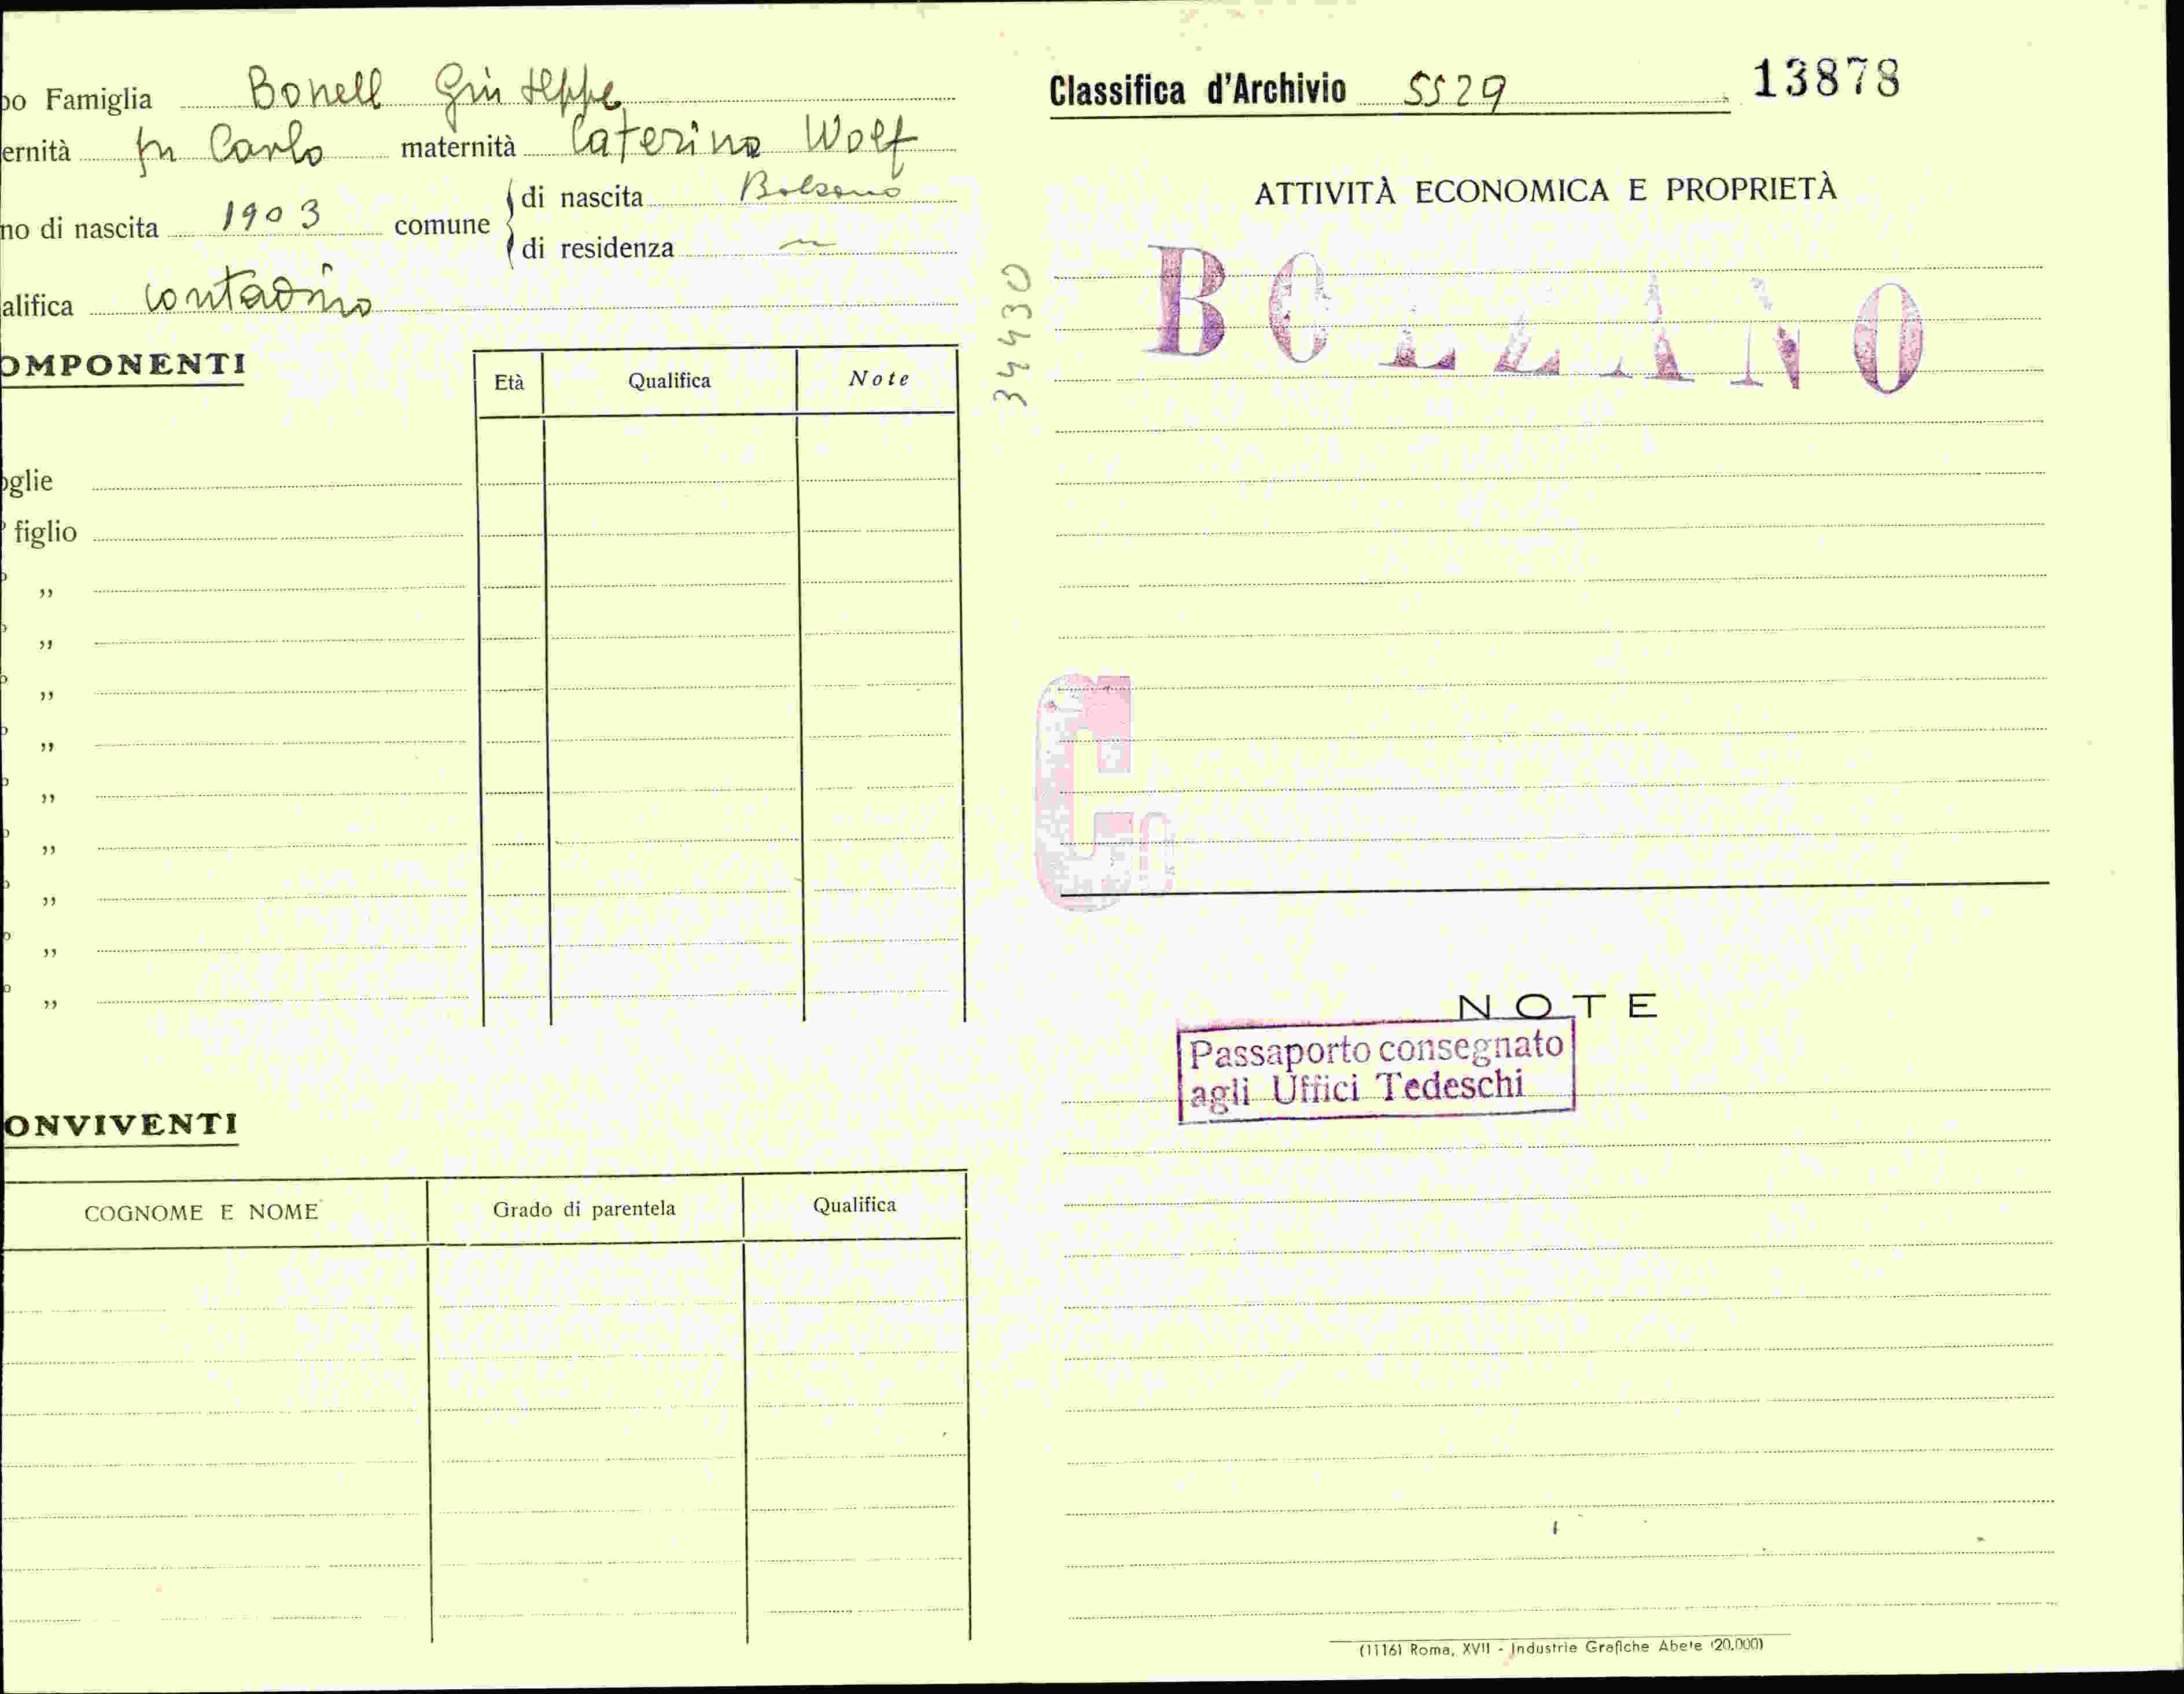 po Famiglia Bonell Giuseppe
ernità fu Carlo maternità Caterina Wolf
no di nascita 1903 comune di nascita Bolzano
di residenza "
alifica contadino
OMPONENTI
Età Qualifica Note
oglie
figlio
"
"
"
"
"
"
"
"
"
ONVIVENTI
COGNOME E NOME Grado di parentela Qualifica
344430
Classifica d'Archivio 5529 13878
ATTIVITÀ ECONOMICA E PROPRIETÀ
BOLZANO
NOTE
Passaporto consegnato
agli Uffici Tedeschi
(1116) Roma, XVII - Industrie Grafiche Abete (20.000)